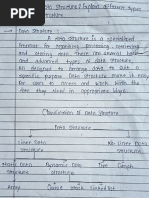 Data Structure? Explain different types
structure.
→ Data Structure :-
A data structure is a specialized
format for organizing, processing, retrieving
and storing data. There are several basic
and advanced types of data structure.
All designed to arrange data to suit a
specific purpose. Data structure make it easy
for users to access and work with the
data they need in appropriate ways.
Classification of Data Structure
Data Structure
Linear Data Structure
Non Linear Data Structure
Static Data
Dynamic Data
Tree
Graph
structure
structure
Array
Queue
stack
linked list